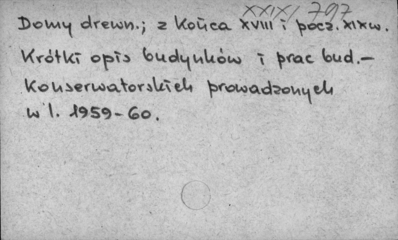 XXIX/797
Domy drewn.; z końca XVIII i pocz. XIX w.
Krótki opis budynków i prac bud.-
konserwatorskich prowadzonych
w l. 1959-60.